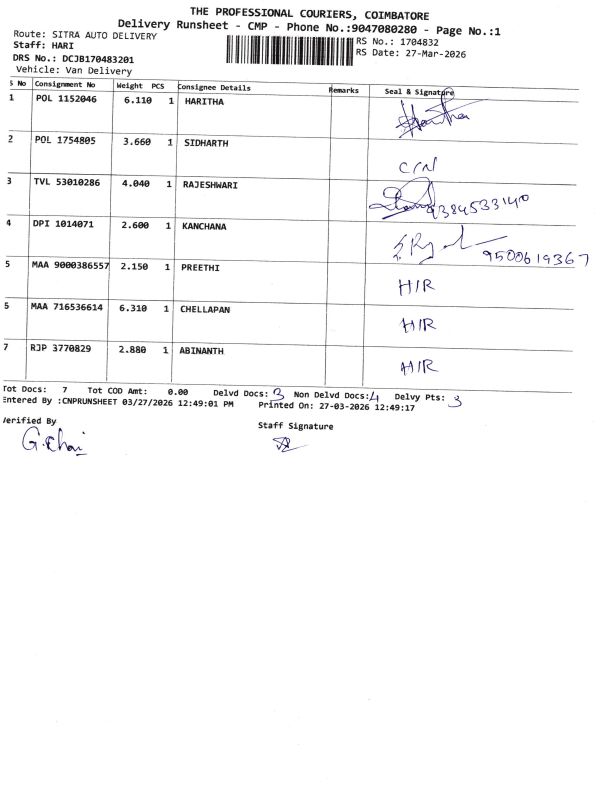 THE PROFESSIONAL COURIERS, COIMBATORE
Delivery Runsheet - CMP - Phone No.:9047080280 - Page No.:1
Route: SITRA AUTO DELIVERY RS No.: 1704832
Staff: HARI RS Date: 27-Mar-2026
DRS No.: DCJB170483201
Vehicle: Van Delivery
S No Consignment No Weight PCS Consignee Details Remarks Seal & Signature
1 POL 1152046 6.110 1 HARITHA
2 POL 1754805 3.660 1 SIDHARTH C/N
3 TVL 53010286 4.040 1 RAJESHWARI 9384533140
4 DPI 1014071 2.600 1 KANCHANA 9500619367
5 MAA 9000386557 2.150 1 PREETHI H/R
6 MAA 716536614 6.310 1 CHELLAPAN H/R
7 RJP 3770829 2.880 1 ABINANTH H/R
Tot Docs: 7 Tot COD Amt: 0.00 Delvd Docs: 3 Non Delvd Docs: 4 Delvy Pts: 3
Entered By :CNPRUNSHEET 03/27/2026 12:49:01 PM Printed On: 27-03-2026 12:49:17
Verified By Staff Signature